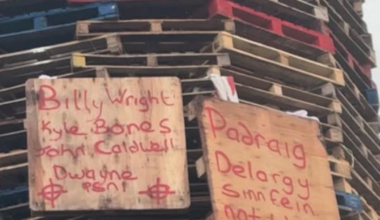 Billy Wright
Kyle Bones
John Caldwell
Dwayne
Padraig
Delargy
Sinn Fein
not